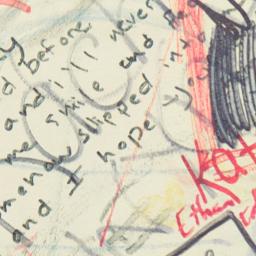 before
and i'll never
me smile and
mehow slipped into
and I hope you
Kat
Ethan